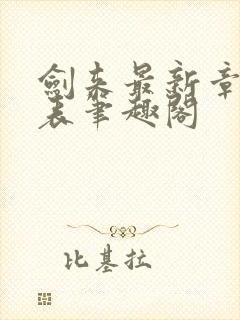 劍來最新章
表筆趣閣
比基拉